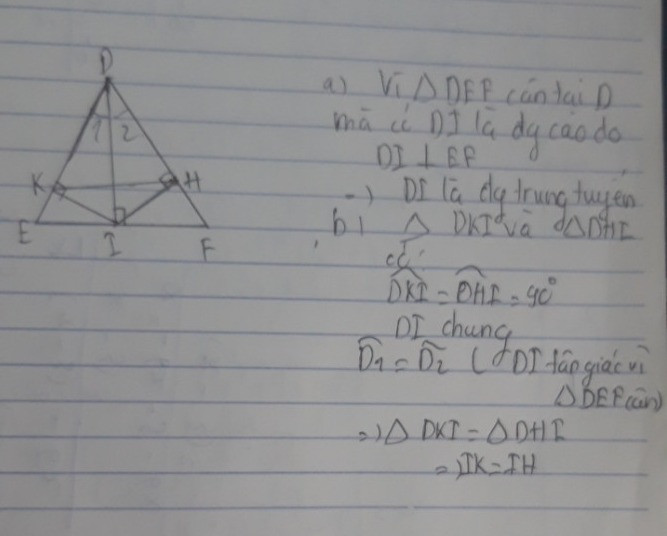 D
1 2
K H
E I F
a) Vì △ DEF cân tại D
mà có DI là đg cao do
DI ⊥ EF
=) DI là đg trung tuyến
b) △ DKI và △DHI
có:
DKI = DHI = 90°
DI chung
D1 = D2 ( DI tân giác vì
△ DEF cân)
=) △ DKI = △ DHI
=) IK = IH